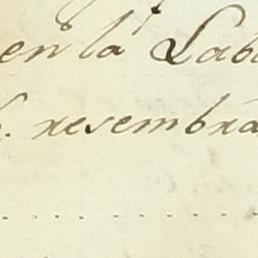 en la Lab
resembra